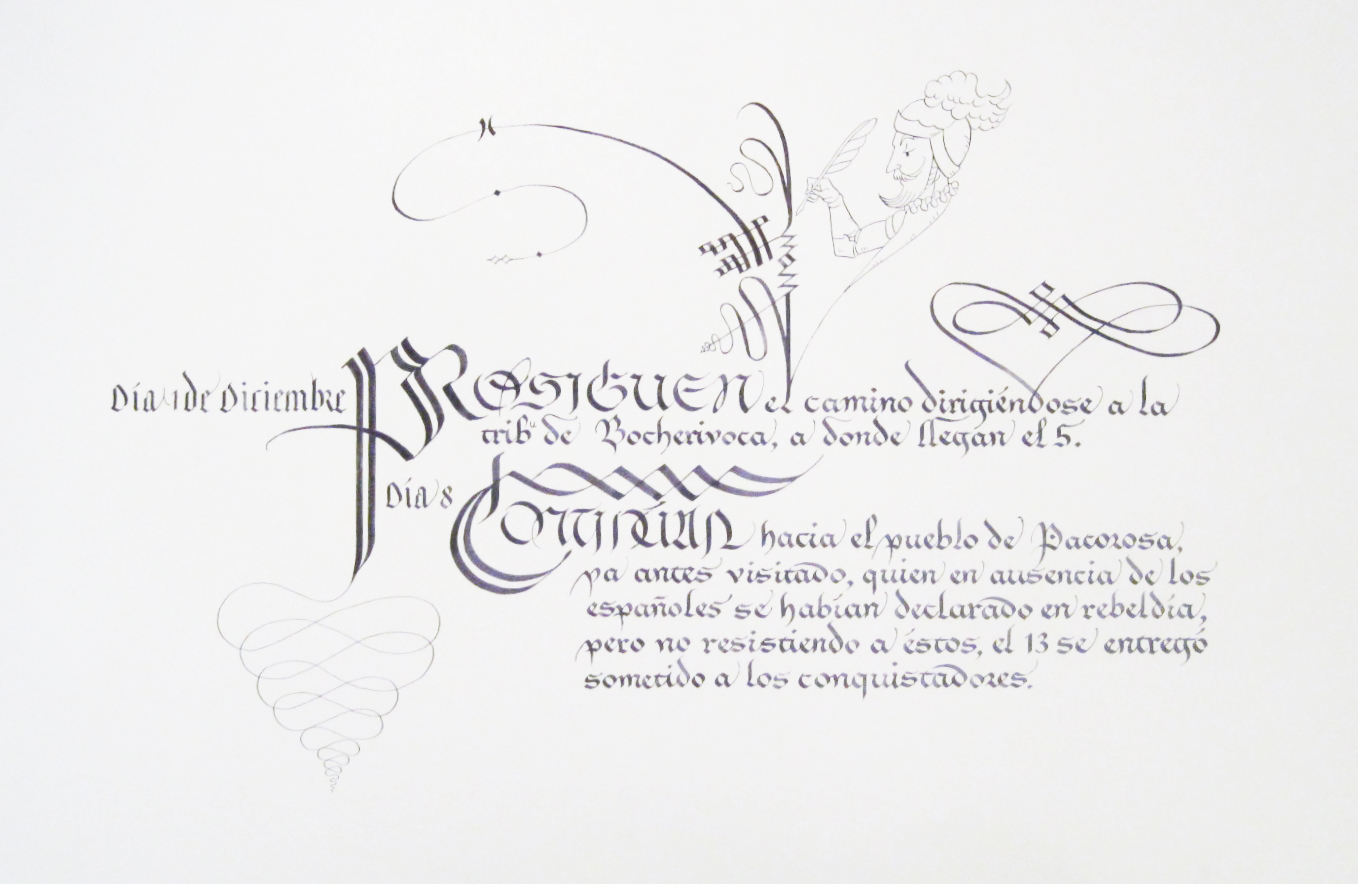 Día 4 de Diciembre PROSIGUEN el camino dirigiéndose a la
tribu de Bocherivoca, a donde llegan el 5.
Día 8 CONTINÚAN hacia el pueblo de Pacorosa,
ya antes visitado, quien en ausencia de los
españoles se habían declarado en rebeldía,
pero no resistiendo a éstos, el 13 se entregó
sometido a los conquistadores.